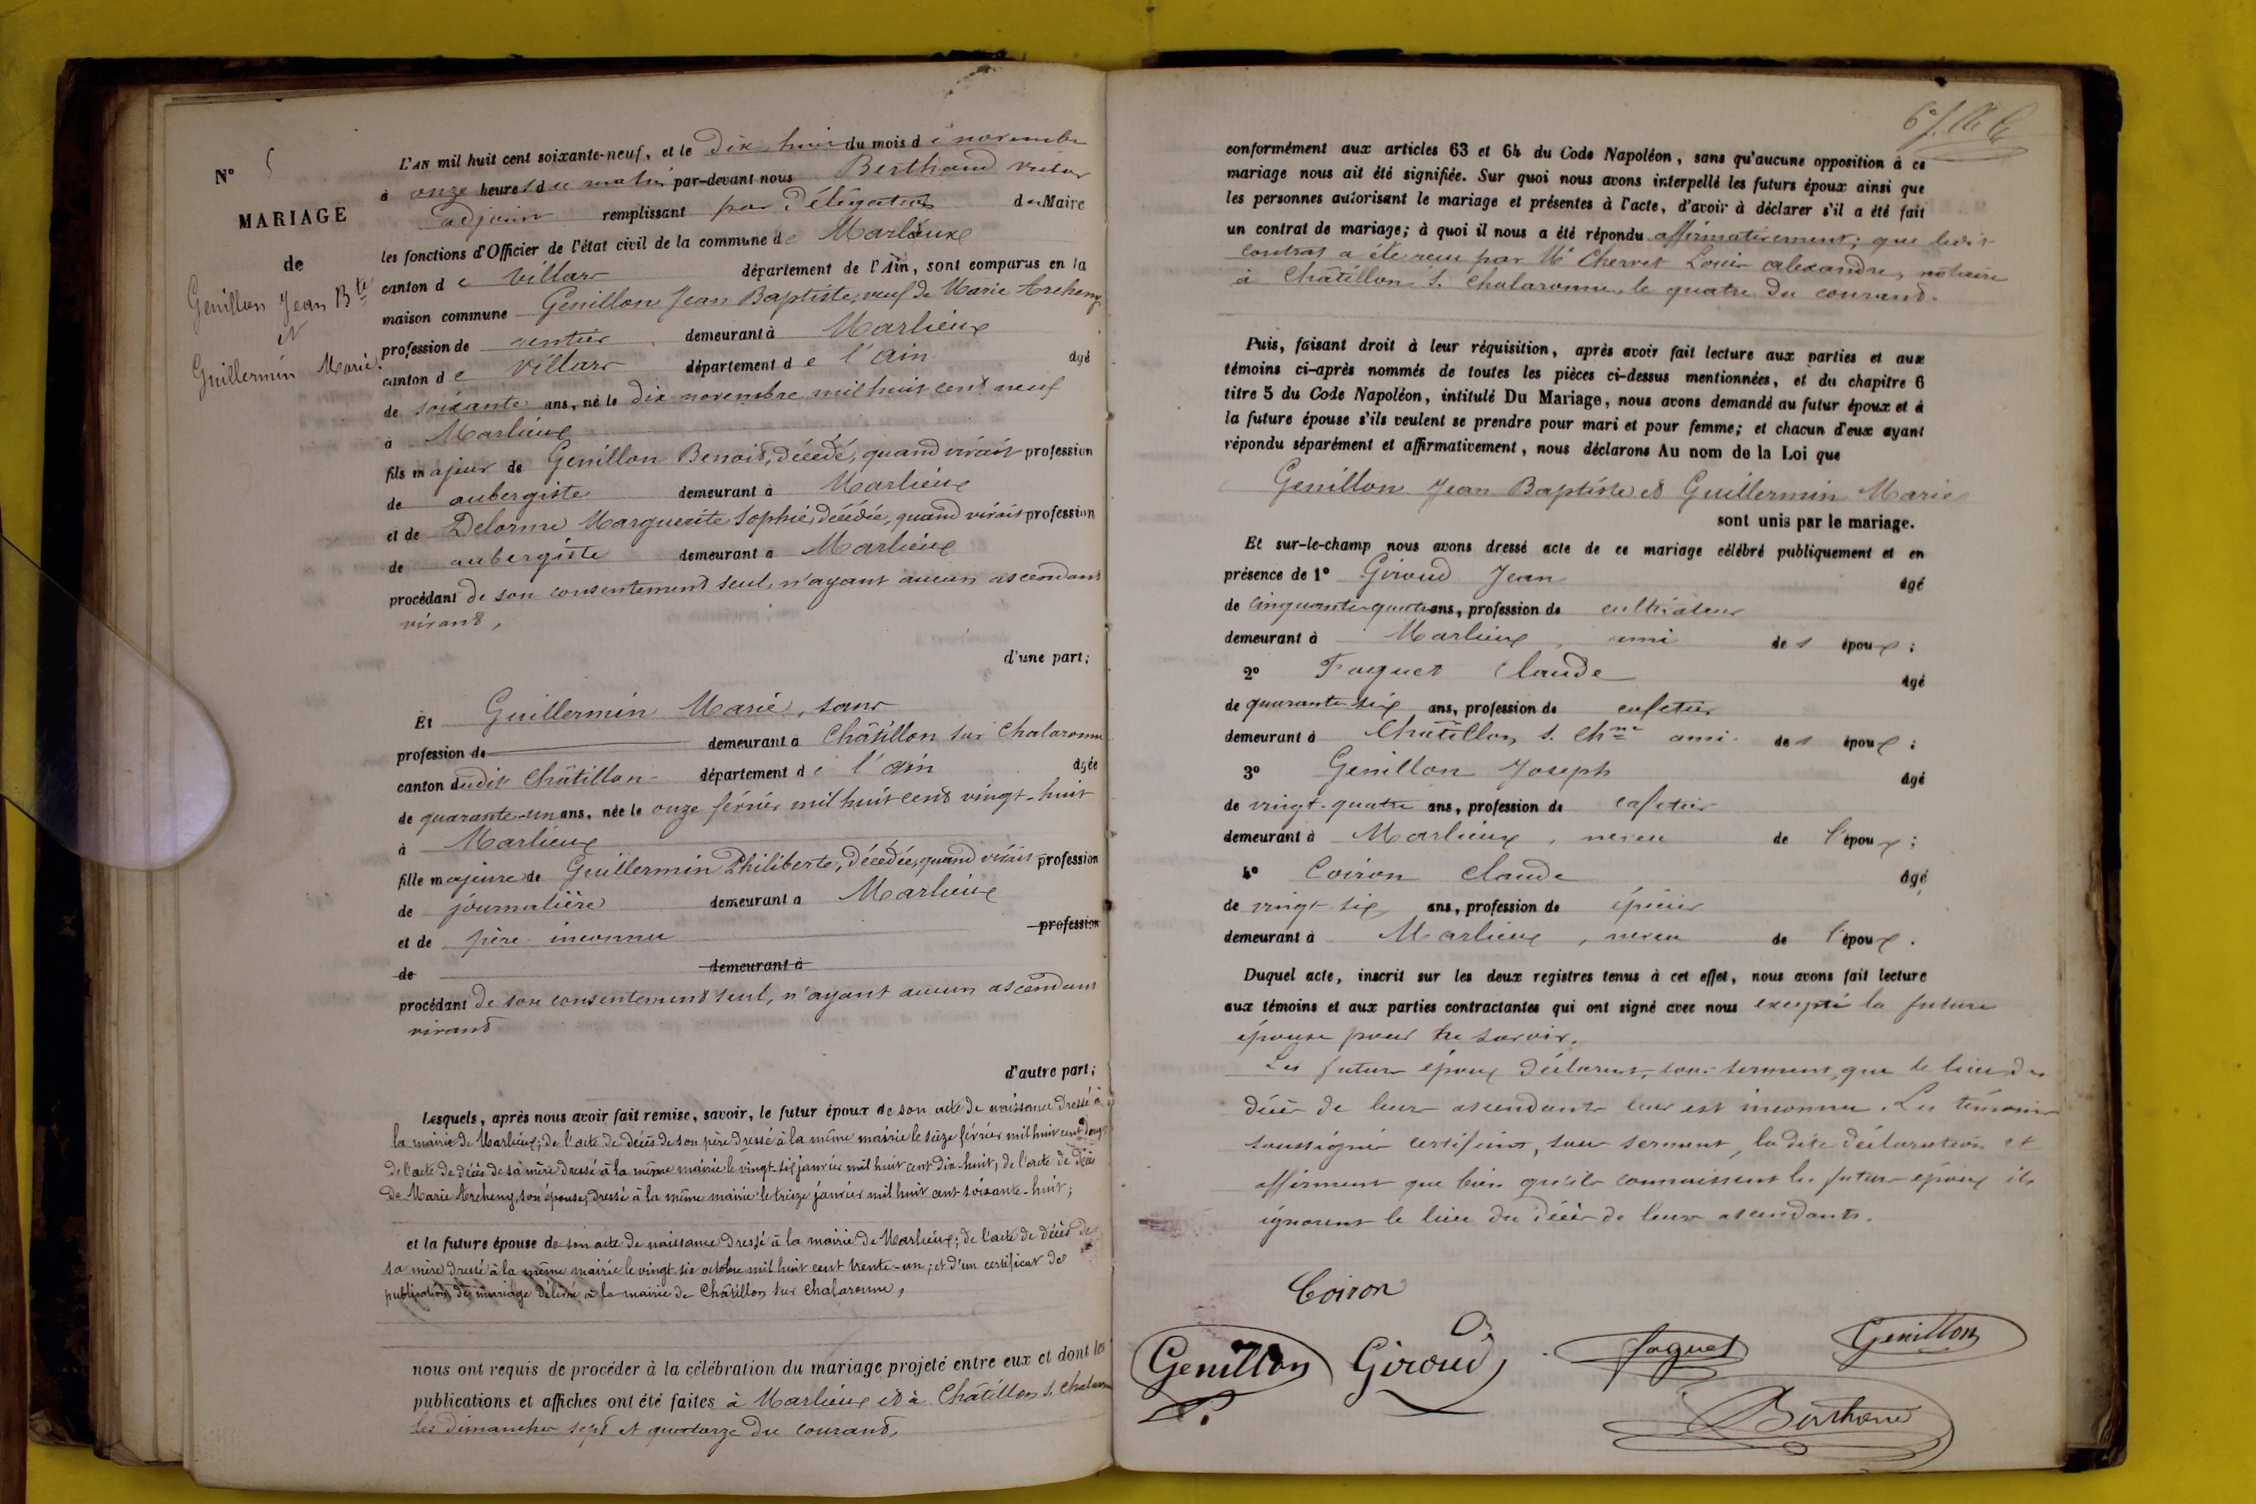 N° 5
MARIAGE
de
Genillon Jean Bte
et
Guillermin Marie.
L'AN mil huit cent soixante-neuf, et le dix huit du mois de novembre
à onze heures du matin par-devant nous Berthaud Victor
adjoint remplissant par délégation du Maire
les fonctions d'Officier de l'état civil de la commune de Marlieux
canton de Villars département de l'Ain, sont comparus en la
maison commune Genillon Jean Baptiste, veuf de Marie Archeny
profession de rentier, demeurant à Marlieux
canton de Villars département de l'Ain âgé
de soixante ans, né le dix novembre mil huit cent neuf
à Marlieux
fils majeur de Genillon Benoit, décédé, quand vivait profession
de aubergiste demeurant à Marlieux
et de Delorme Marguerite Sophie, décédée, quand vivait profession
de aubergiste demeurant à Marlieux
procédant de son consentement seul, n'ayant aucun ascendant
vivant,
d'une part;
Et Guillermin Marie, sans
profession de demeurant à Châtillon sur Chalaronne
canton dudit Châtillon département de l'Ain âgée
de quarante-un ans, née le onze février mil huit cent vingt-huit
à Marlieux
fille majeure de Guillermin Philiberte, décédée, quand vivait profession
de journalière demeurant à Marlieux
et de père inconnu profession
de demeurant à
procédant de son consentement seul, n'ayant aucun ascendant
vivant
d'autre part;
Lesquels, après nous avoir fait remise, savoir, le futur époux de son acte de naissance dressé à
la mairie de Marlieux; de l'acte de décès de son père dressé à la même mairie le seize février mil huit cent douze
de l'acte de décès de sa mère dressé à la même mairie le vingt-six janvier mil huit cent dix-huit, de l'acte de décès
de Marie Archeny, son épouse, dressé à la même mairie le treize janvier mil huit cent soixante-huit;
et la future épouse de son acte de naissance dressé à la mairie de Marlieux; de l'acte de décès de
sa mère dressé à la même mairie le vingt-six octobre mil huit cent trente-un; et d'un certificat de
publications de mariage délivré à la mairie de Châtillon sur Chalaronne,
nous ont requis de procéder à la célébration du mariage projeté entre eux et dont les
publications et affiches ont été faites à Marlieux et à Châtillon s. Chalaronne
les dimanches sept et quatorze du courant,
conformément aux articles 63 et 64 du Code Napoléon, sans qu'aucune opposition à ce
mariage nous ait été signifiée. Sur quoi nous avons interpellé les futurs époux ainsi que
les personnes autorisant le mariage et présentes à l'acte, d'avoir à déclarer s'il a été fait
un contrat de mariage; à quoi il nous a été répondu affirmativement; que ledit
contrat a été reçu par Me Chervet Louis Alexandre, notaire
à Châtillon s. Chalaronne, le quatre du courant.
Puis, faisant droit à leur réquisition, après avoir fait lecture aux parties et aux
témoins ci-après nommés de toutes les pièces ci-dessus mentionnées, et du chapitre 6
titre 5 du Code Napoléon, intitulé Du Mariage, nous avons demandé au futur époux et à
la future épouse s'ils veulent se prendre pour mari et pour femme; et chacun d'eux ayant
répondu séparément et affirmativement, nous déclarons Au nom de la Loi que
Genillon Jean Baptiste et Guillermin Marie
sont unis par le mariage.
Et sur-le-champ nous avons dressé acte de ce mariage célébré publiquement et en
présence de 1° Giroud Jean âgé
de cinquante-quatre ans, profession de cultivateur
demeurant à Marlieux, ami des époux;
2° Faguet Claude âgé
de quarante six ans, profession de cafetier
demeurant à Châtillon s. Chne ami des époux;
3° Genillon Joseph âgé
de vingt-quatre ans, profession de cafetier
demeurant à Marlieux, neveu de l'époux;
4° Coiron Claude âgé
de vingt six ans, profession de épicier
demeurant à Marlieux, neveu de l'époux.
Duquel acte, inscrit sur les deux registres tenus à cet effet, nous avons fait lecture
aux témoins et aux parties contractantes qui ont signé avec nous excepté la future
épouse pour ne savoir.
Les futurs époux déclarent, sous serment, que le lieu du
décès de leurs ascendants leur est inconnu. Les témoins
soussignés certifient, sous serment, la dite déclaration et
affirment que bien qu'ils connaissent les futurs époux ils
ignorent le lieu du décès de leurs ascendants.
Coiron
Genillon Giroud Faguet Genillon
Berthaud